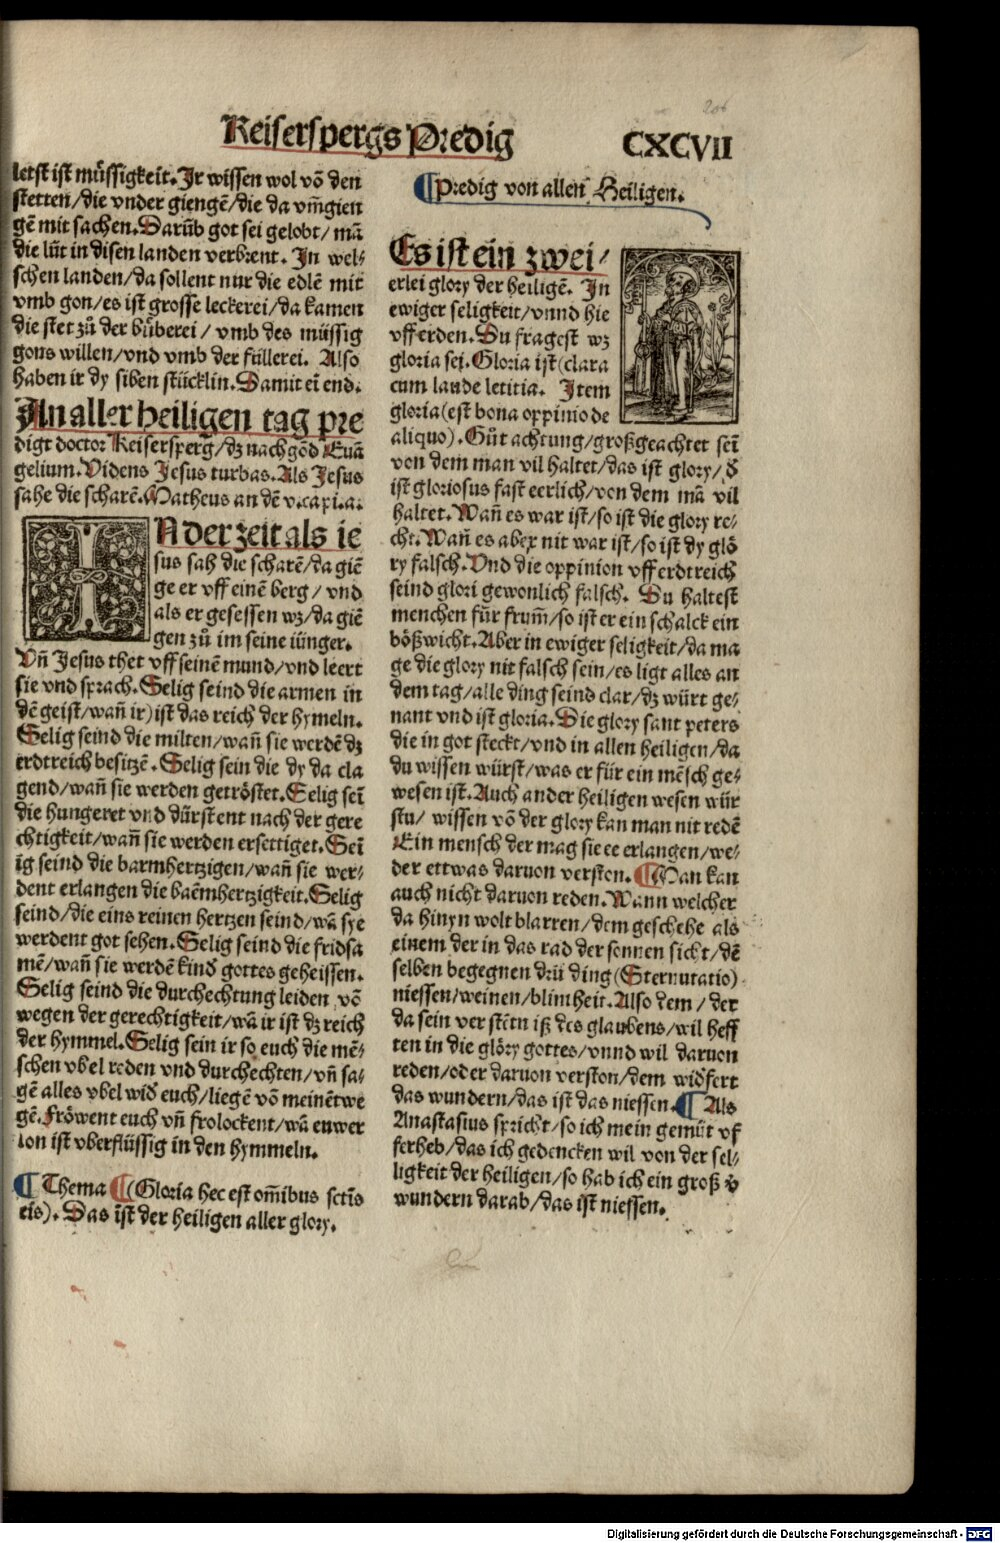 206
Keiserspergs Predig
CXCVII
letst ist müssigkeit. Jr wissen wol võ den
stetten/die vnder giengẽ/die da vm̃gien
gẽ mit sachen. Darũb got sei gelobt/ mã
die lüt in disen landen verbrent. Jn wel⸗
schen landen/da sollent nur die edlẽ mit
vmb gon/es ist grosse leckerei/da kamen
die stet zů der bůberei / vmb des müssig
gons willen/vnd vmb der füllerei. Also
haben ir dy siben stücklin. Damit ei end.
An aller heiligen tag pre
digt doctor Keisersperg/dz nachgõd Euã
gelium. Videns Jesus turbas. Als Jesus
sahe die scharẽ. Matheus an dẽ v. capi. a.
N der zeit als ie
sus sah die scharẽ/da giẽ
ge er vff einẽ berg / vnd
als er gesessen wz/da giẽ
gen zů im seine iünger.
Vñ Jesus thet vff seinẽ mund/vnd leert
sie vnd sprach. Selig seind die armen in
dẽ geist/wañ ir) ist das reich der hymeln.
Selig seind die milten/wañ sie werdẽ dz
erdtreich besitzẽ. Selig sein die dy da cla
gend/wañ sie werden getröstet. Selig seī
die hungeret vnd dürstent nach der gere
chtigkeit/wañ sie werden ersettiget. Seī
ig seind die barmhertzigen/wañ sie wer⸗
dent erlangen die baẽmhertzigkeit. Selig
seind/die eins reinen hertzen seind/wã sye
werdent got sehen. Selig seind die fridsa
mẽ/wañ sie werdẽ kind gottes geheissen.
Selig seind die durchechtung leiden võ
wegen der gerechtigkeit/wã ir ist dz reich
der hymmel. Selig sein ir so euch die mẽ⸗
schen vbel reden vnd durchechten/vñ sa⸗
gẽ alles vbel wid̃ euch/liegẽ võ meinẽtwe
gẽ. Fröwent euch vñ frolockent/wã euwer
lon ist vberflüssig in den hymmeln.
¶ Thema ¶ (Gloria hec est om̃ibus sctīs
eis). Das ist der heiligen aller glory.
¶ Predig von allen Heiligen.
Es ist ein zwei⸗
erlei glory der heiligẽ. Jn
ewiger seligkeit/vnnd hie
vff erden. Du fragest wz
gloria sei. Gloria ist (clara
cum laude letitia. Jtem
gloria (est bona oppinio de
aliquo). Gůt achtung/großgeachtet seī
von dem man vil haltet/das ist glory/ d̃
ist gloriosus fast eerlich/von dem mã vil
haltet. Wañ es war ist/so ist die glory re⸗
cht. Wañ es aber nit war ist/so ist dy glo
ry falsch. Vnd die oppinion vff erdtreich
seind glori gewonlich falsch. Du haltest
menchen für frum̃/so ist er ein schalck ein
bößwicht. Aber in ewiger seligkeit/da ma
ge die glory nit falsch sein/es ligt alles an
dem tag/alle ding seind clar/dz würt ge⸗
nant vnd ist gloria. Die glory sant peters
die in got steckt/vnd in allen heiligen/da
du wissen würst/was er für ein mẽsch ge⸗
wesen ist. Auch ander heiligen wesen wür
stu/ wissen võ der glory kan man nit redẽ
Ein mensch der mag sie ee erlangen/we⸗
der ettwas daruon verston. ¶ Man kan
auch nicht daruon reden. Wann welcher
da hinyn wolt blarren/dem geschehe als
einem der in das rad der sonnen sicht/dẽ
selben begegnen drü ding (Sternutatio)
niessen/weinen/blintheit. Also dem / der
da sein verstẽtniß des glaubens/wil heff
ten in die glöry gottes/vnnd wil daruon
reden/oder daruon verston/dem wid̃fert
das wundern/das ist das niessen. ¶ Als
Anastasius spricht/so ich mein gemüt vf
ferheb/das ich gedencken wil von der sel⸗
ligkeit der heiligen/so hab ich ein groß v̄
wundern darab/das ist niessen.
Digitalisierung gefördert durch die Deutsche Forschungsgemeinschaft - DFG